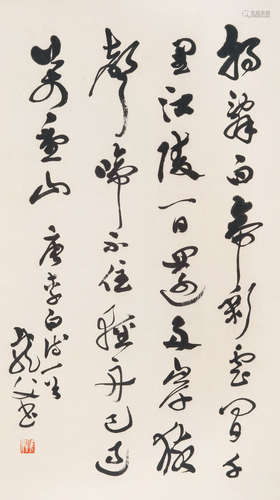 朝辭白帝彩雲間千
里江陵一日還兩岸猿
聲啼不住輕舟已過
萬重山 唐李白詩一首
書